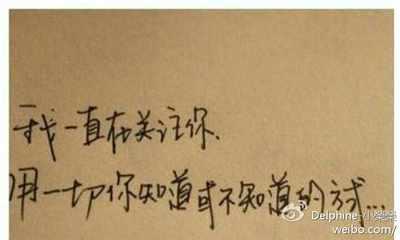 我一直在关注你.
用一切你知道或不知道的方式...
Delphine-小樂樂
weibo.com/